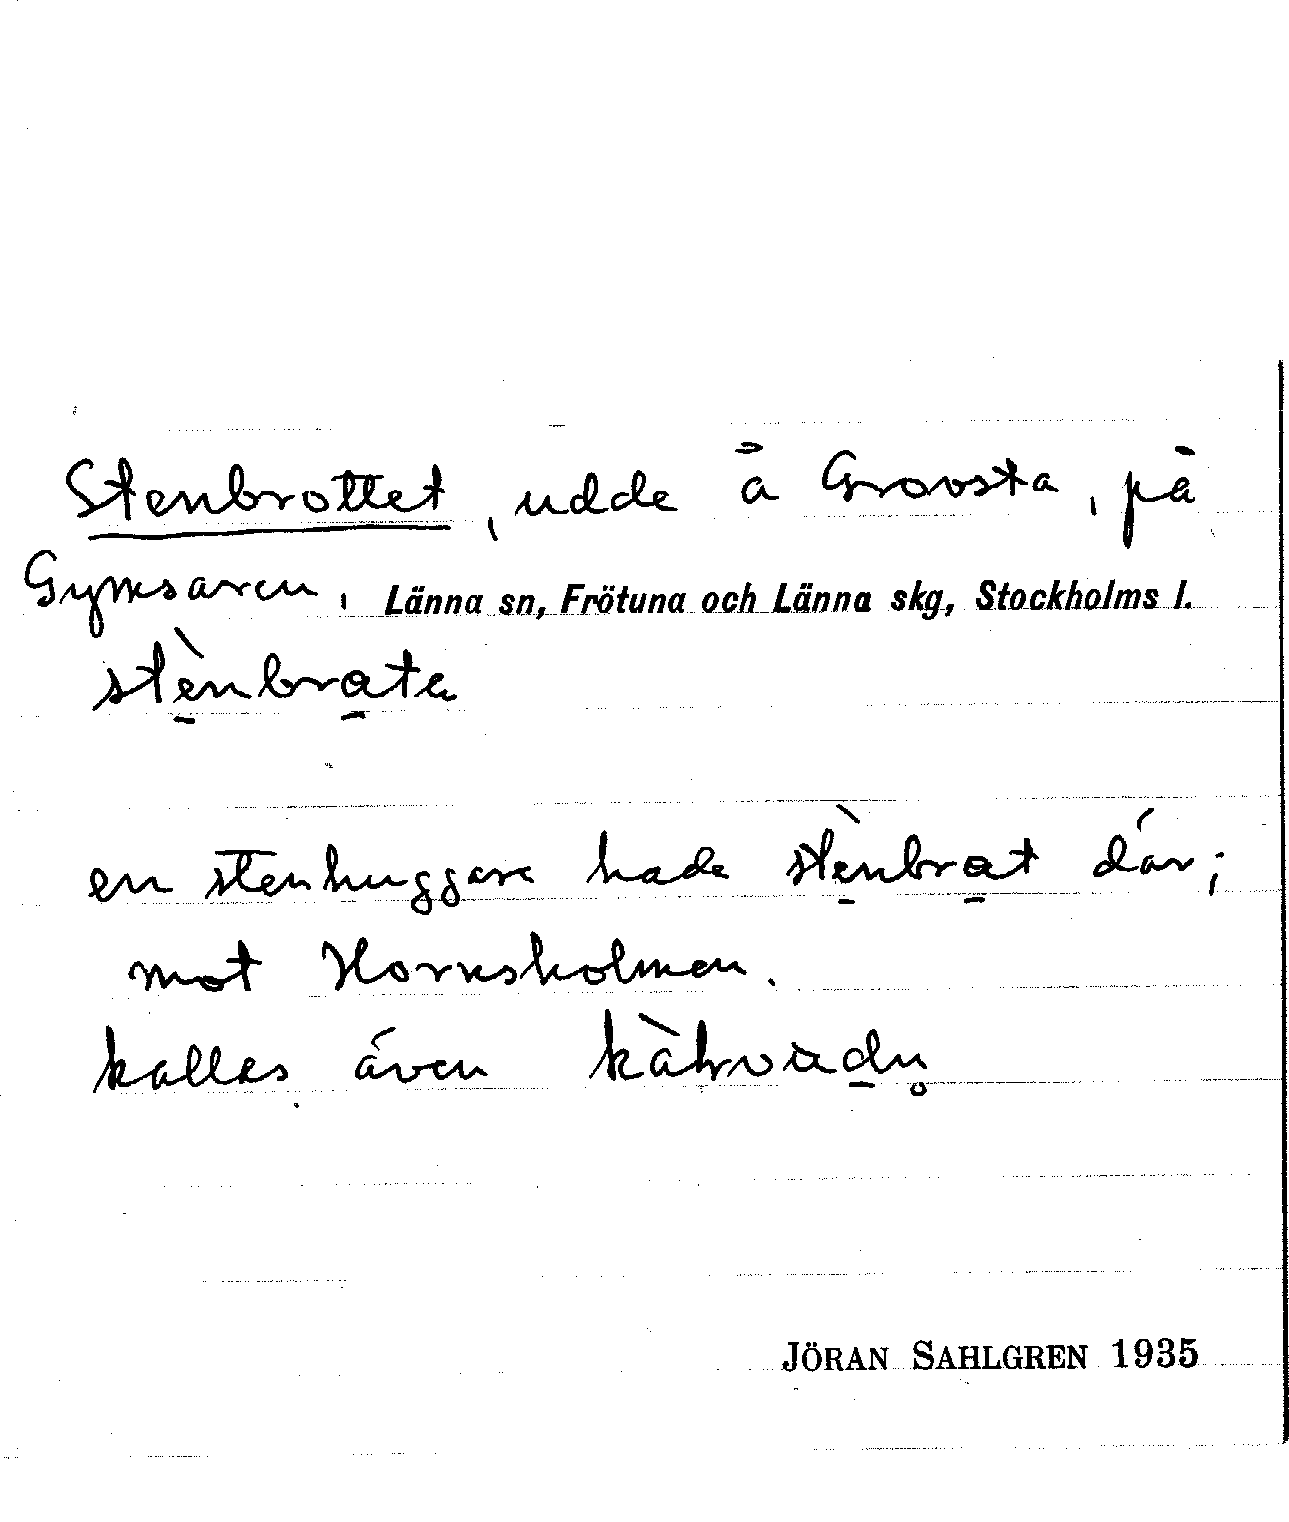 Stenbrottet, udde å Grovsta, på
Gymsaren, Länna sn, Frötuna och Länna skg, Stockholms l.
stènbrate
en stenhuggare hade stènbrat där;
mot Hornsholmen.
kallas även
JÖRAN SAHLGREN 1935